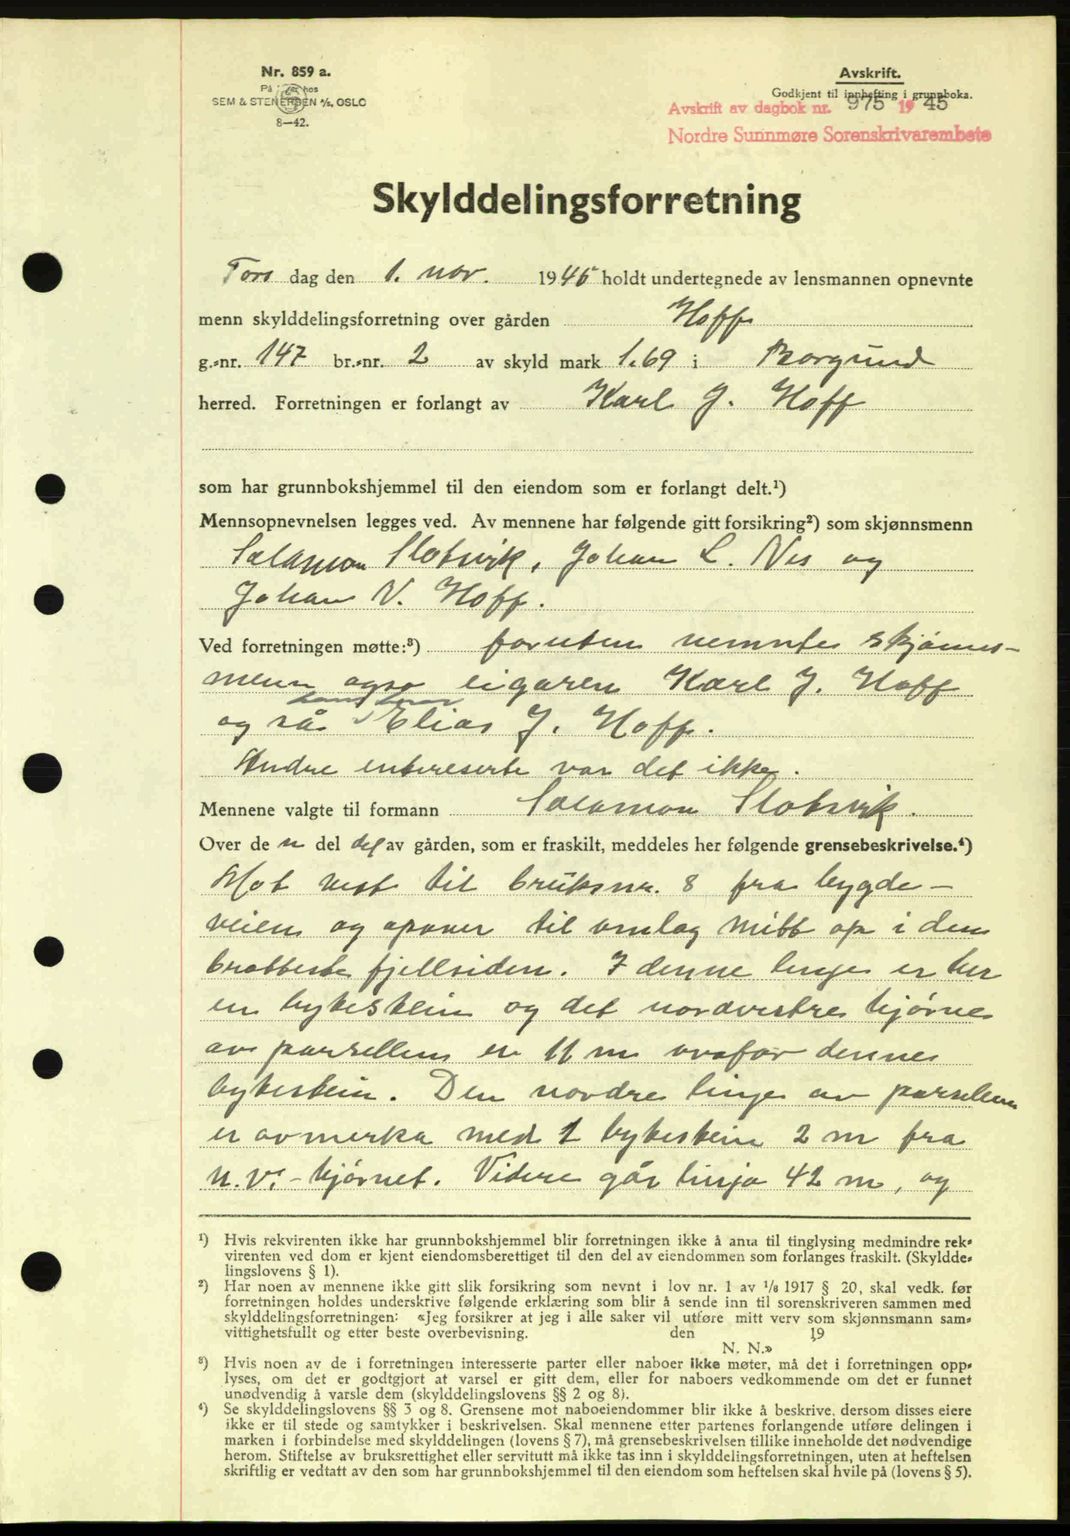 Nr. 859 a.
På lager hos
SEM & STENERSEN A/S, OSLO
8—42.
Avskrift.
Godkjent til innhefting i grunnboka.
Avskrift av dagbok nr. 975 1945
Nordre Sunnmøre Sorenskrivarembete
Skylddelingsforretning
Tors dag den 1. nov. 1945 holdt undertegnede av lensmannen opnevnte
menn skylddelingsforretning over gården Hoff
g.-nr. 147 br.-nr. 2 av skyld mark 1.69 i Borgund
herred. Forretningen er forlangt av Karl J. Hoff
som har grunnbokshjemmel til den eiendom som er forlangt delt.¹)
Mennsopnevnelsen legges ved. Av mennene har følgende gitt forsikring²) som skjønnsmenn
Salamon Slotsvik, Johan L. Nes og
Johan V. Hoff.
Ved forretningen møtte:³) foruten nemnte skjønns-
menn også eigaren Karl J. Hoff
og så Elias J. Hoff.
Andre intereserte var det ikke.
Mennene valgte til formann Salamon Slotsvik.
Over de n del del av gården, som er fraskilt, meddeles her følgende grensebeskrivelse.⁴)
Mot vest til bruksnr. 8 fra bygde-
veien og opover til omlag mitt op i den
bratteste fjellsiden. I denne linje er her
en bytestein og det nordvestre hjørne
av parsellen er 11 m ovafor denne
bytestein. Den nordre linje av parselen
er avmerka med 1 bytestein 2 m fra
n.v.-hjørnet. Videre går linja 42 m, og
¹) Hvis rekvirenten ikke har grunnbokshjemmel blir forretningen ikke å anta til tinglysing medmindre rek-
virenten ved dom er kjent eiendomsberettiget til den del av eiendommen som forlanges fraskilt. (Skyldde-
lingslovens § 1).
²) Har noen av mennene ikke gitt slik forsikring som nevnt i lov nr. 1 av 1/6 1917 § 20, skal vedk. før
forretningen holdes underskrive følgende erklæring som blir å sende inn til sorenskriveren sammen med
skylddelingsforretningen: «Jeg forsikrer at jeg i alle saker vil utføre mitt verv som skjønnsmann sam-
vittighetsfullt og etter beste overbevisning. den 19
N. N.»
³) Hvis noen av de i forretningen interesserte parter eller naboer ikke møter, må det i forretningen opp-
lyses, om det er godtgjort at varsel er gitt dem, eller for naboers vedkommende om det er funnet
unødvendig å varsle dem (skylddelingslovens §§ 2 og 8).
⁴) Se skylddelingslovens §§ 3 og 8. Grensene mot naboeiendommer blir ikke å beskrive, dersom disses eiere
ikke er til stede og samtykker i beskrivelsen. Skal mennene etter partenes forlangende utføre delingen i
marken i forbindelse med skylddelingen (lovens § 7), må grensebeskrivelsen tillike inneholde det nødvendige
herom. Stiftelse av bruksrettighet eller servitutt må ikke tas inn i skylddelingsforretningen, uten at heftelsen
skriftlig er vedtatt av den som har grunnbokshjemmel til den eiendom som heftelsen skal hvile på (lovens § 5).